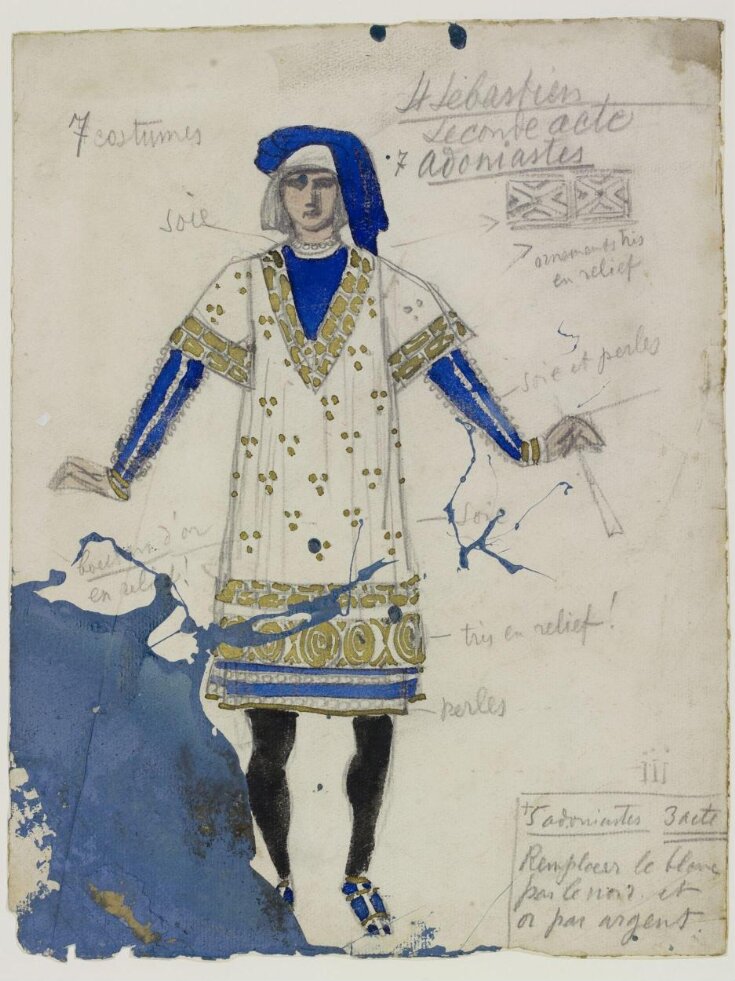 St Sébastien
Seconde acte
7 adoniastes
7 costumes
soie
ornements tris
en relief
soie et perles
soie
d'or
en relief!
tris en relief!
perles
III
+5 adoniastes 3 acte
Remplacer le blanc
par le noir et
or par argent.